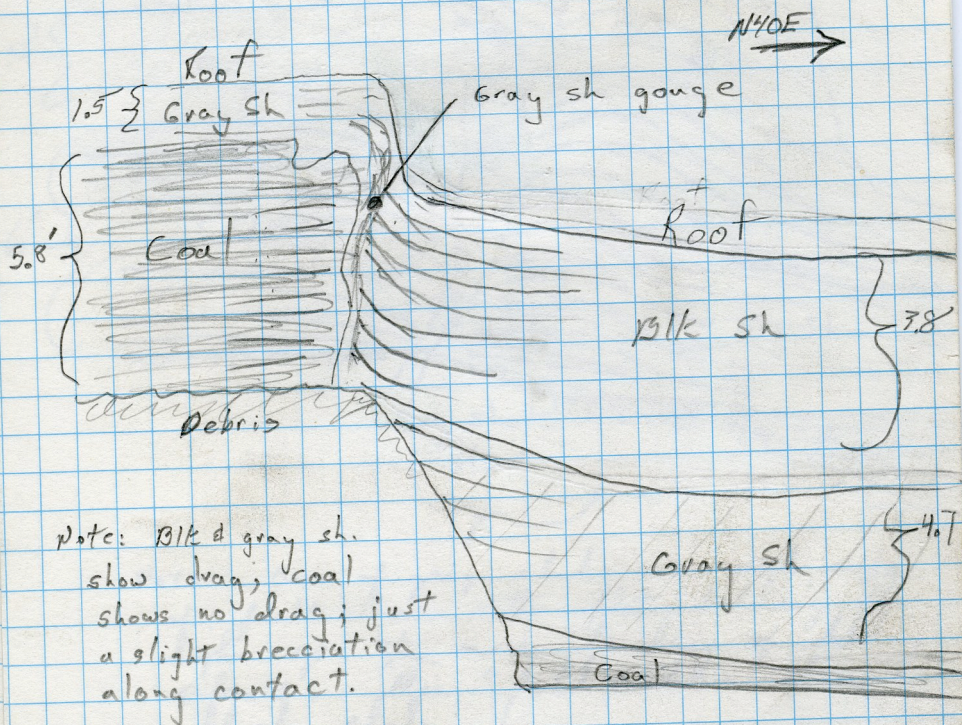 N40E
Roof
1.5
Gray Sh
Gray sh gouge
5.8'
Coal
Roof
Blk Sh
3.8
Debris
4.7
Gray Sh
Coal
Note: Blk & gray sh.
show drag; coal
shows no drag; just
a slight brecciation
along contact.